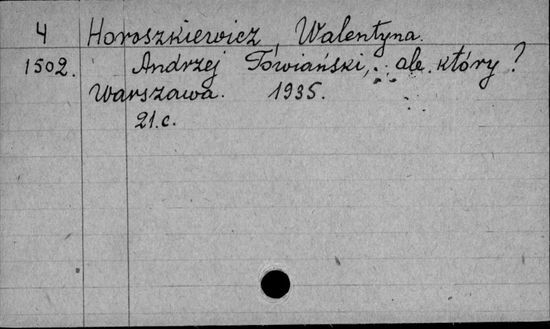 4 Horoszkiewicz, Walentyna.
1502. Andrzej Towiański, ale który?
Warszawa. 1935.
21.c.